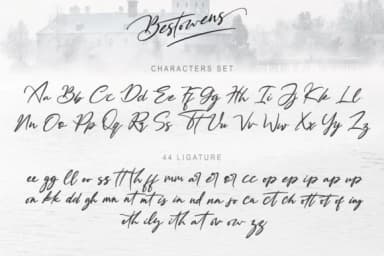 Bestowens
CHARACTERS SET
Aa Bb Cc Dd Ee Ff Gg Hh Ii Jj Kk Ll
Nn Oo Pp Qq Rr Ss Tt Uu Vv Ww Xx Yy Zz
44 LIGATURE
ee gg ll oo ss tt th ff mm ar er or cc op ep ip ap up
on kk dd gh ma at mt is in nd na so ca ct ch ott ot of ing
eth ily ith at ow ow zz